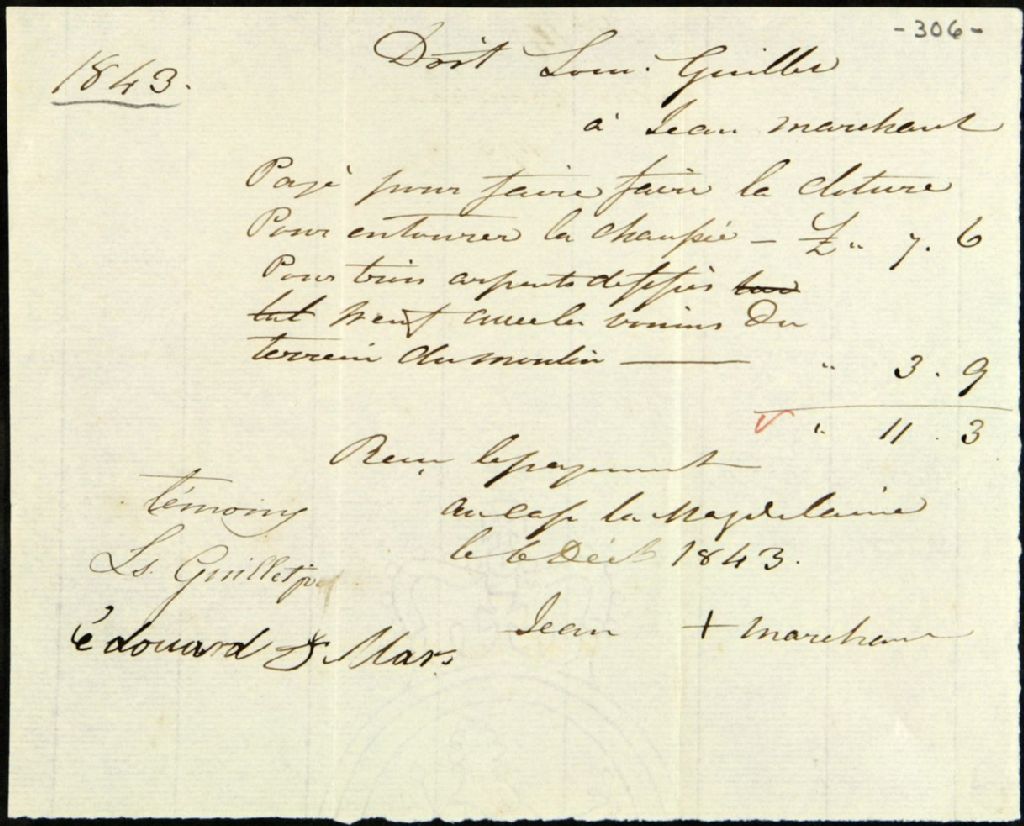 - 306 -
1843.
Doit Louis Guillet
à Jean marchant
Payé pour faire faire la cloture
Pour entourer la chaussié — £ " 7. 6
Pour trois arpents de fossés
neuf avec les voisins du
terrein du moulin — " 3. 9
" 11. 3
Recu le payement
au cap la Magdelaine
le 6 Déc 1843.
témoins
Ls. Guillet
Jean + marchant
édouard S Mars